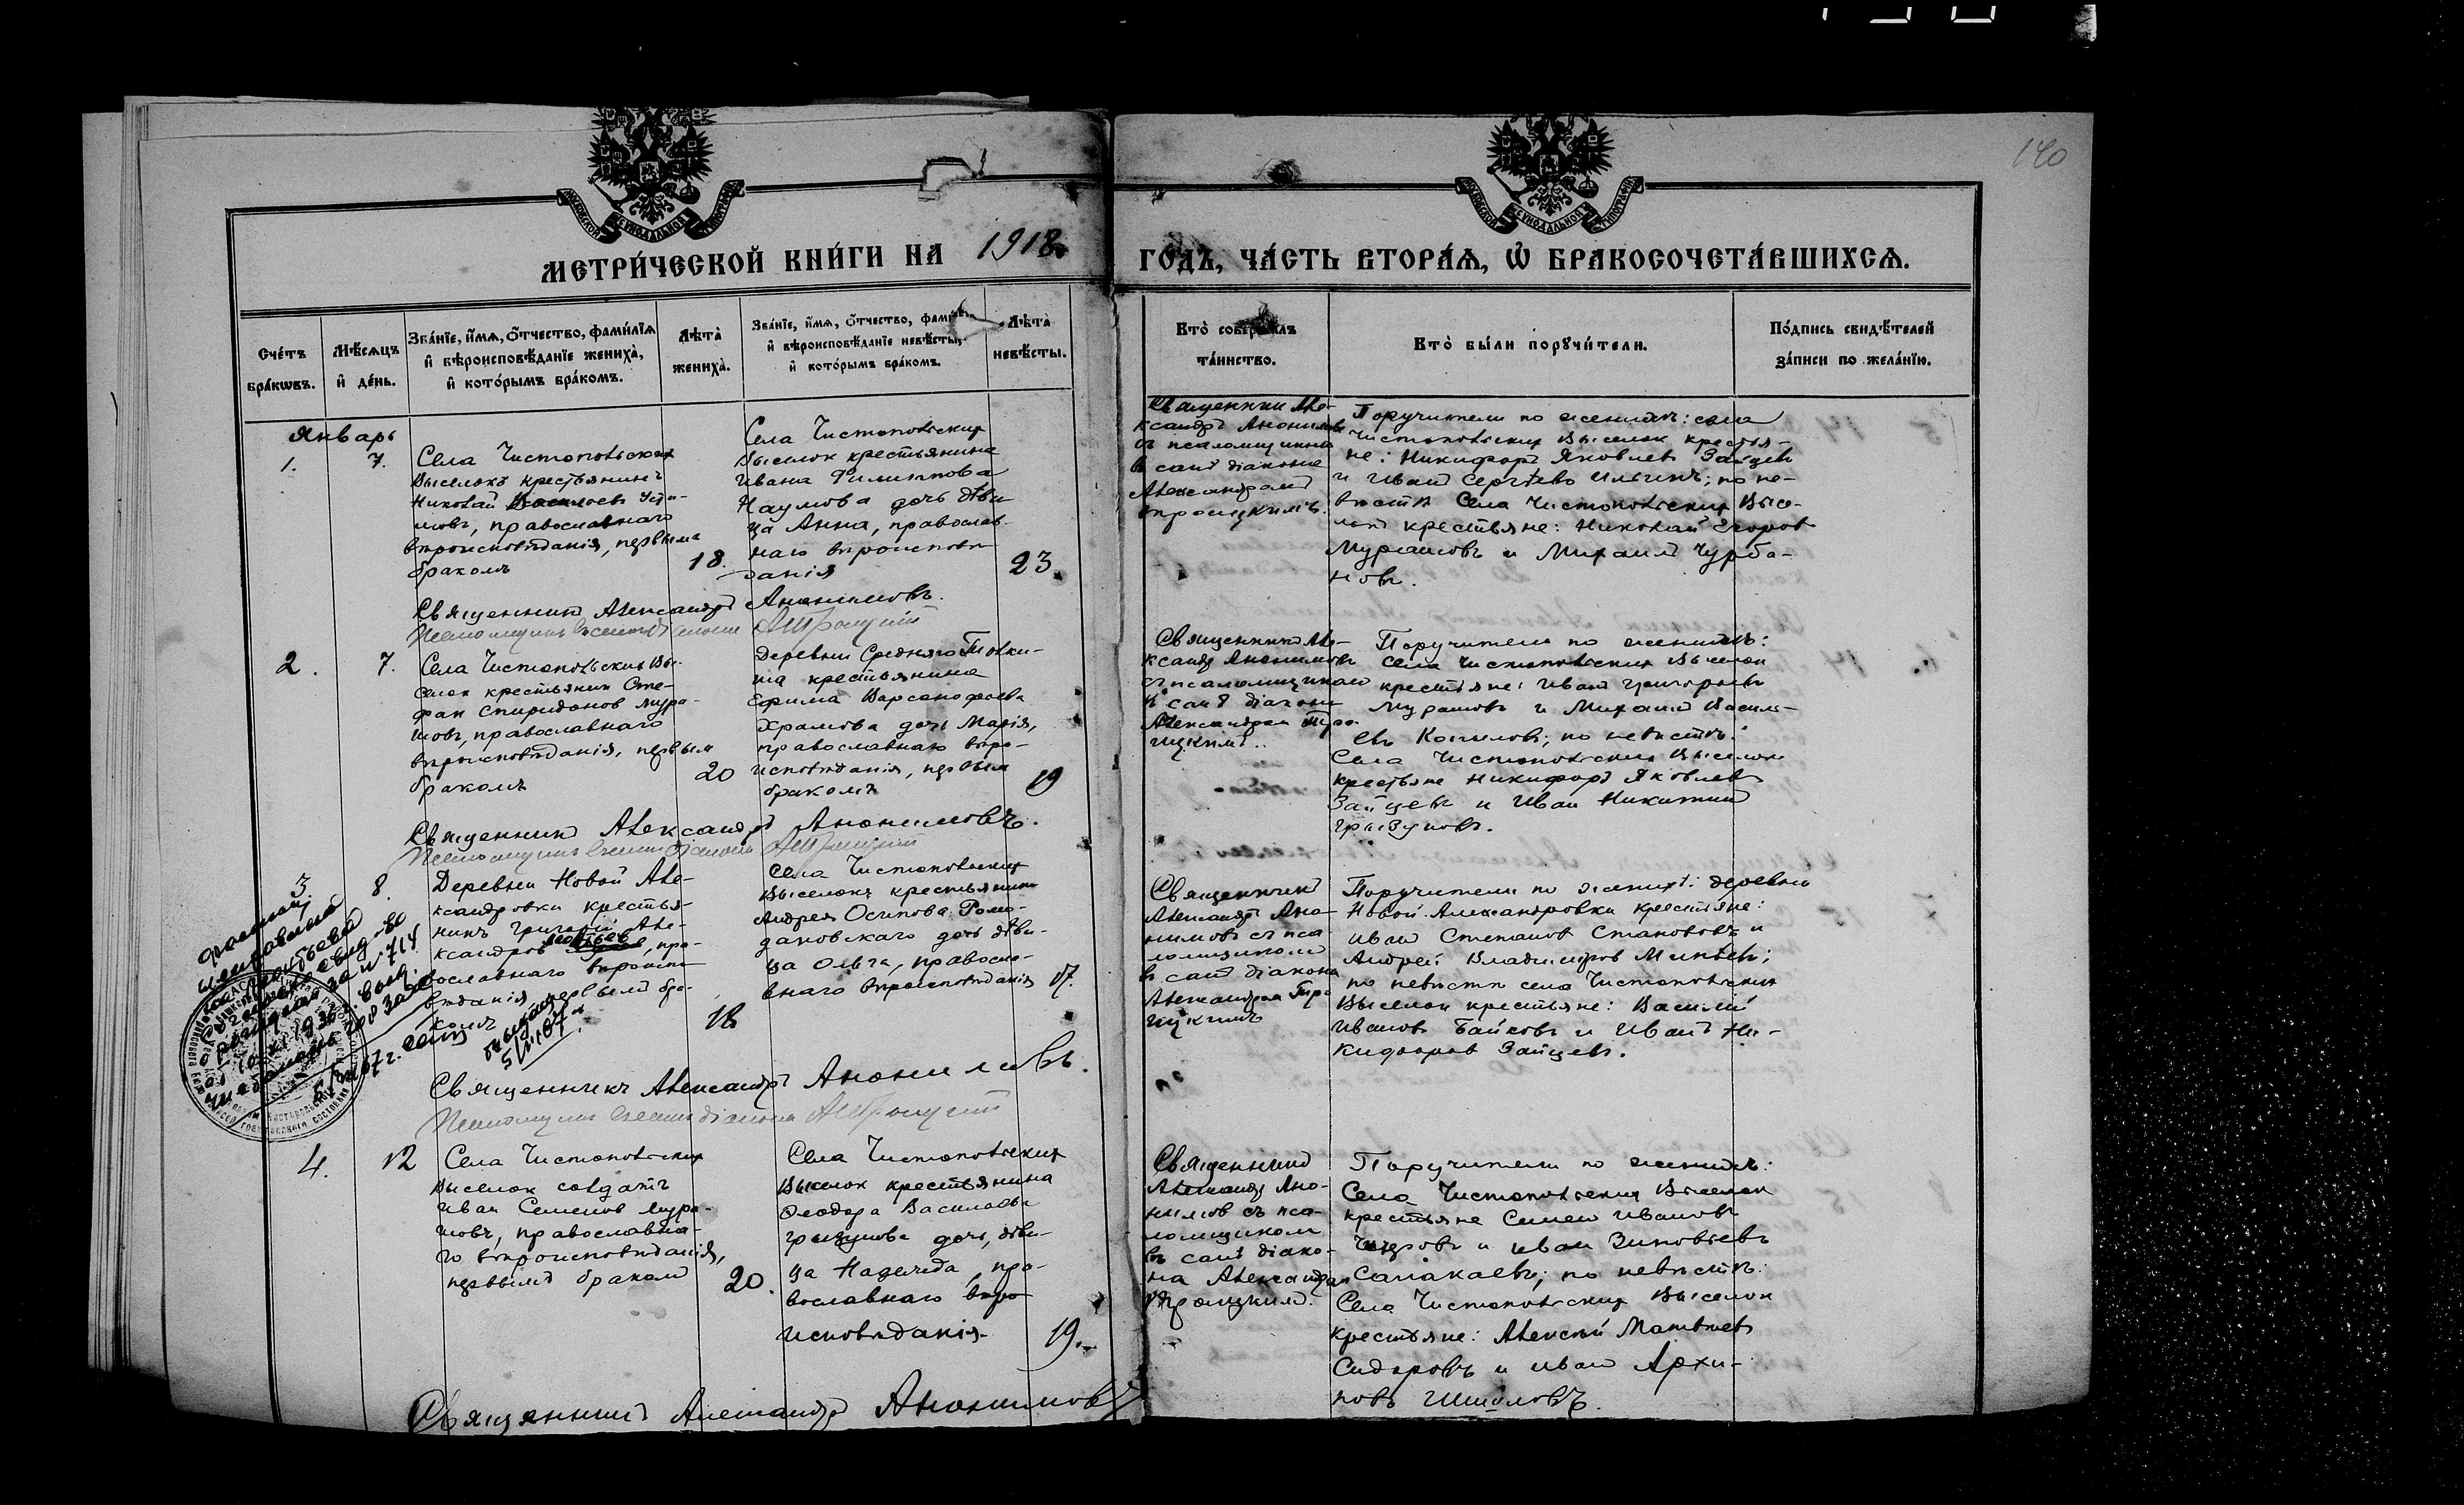 140
МОСКОВСКОЙ СѴНОДАЛЬНОЙ ТИПОГРАФІИ
МОСКОВСКОЙ СѴНОДАЛЬНОЙ ТИПОГРАФІИ
МЕТРИ́ЧЕСКОЙ КНИ́ГИ НА 1918
ГО́ДЪ, ЧА́СТЬ ВТОРА́Ѧ, Ѽ БРАКОСОЧЕТА́ВШИХСѦ.
Сче́тъ бра́кѡвъ.
Мѣ́сѧцъ и҆ де́нь.
Зва́нїе, и҆́мѧ, ѻ҆́тчество, фами́лїѧ
и҆ вѣроисповѣ́данїе жениха̀,
и҆ кото́рымъ бра́комъ.
Лѣ́та̀ жениха̀.
Зва́нїе, и҆́мѧ, ѻ҆́тчество,
и҆ вѣроисповѣ́данїе невѣ́сты,
и҆ кото́рымъ бра́комъ.
Лѣ́та̀ невѣ́сты.
Кто̀
та́инство.
Кто̀ бы́ли порꙋчи́тели.
По́дпись свидѣ́телей
за́писи по жела́нїю.
Январь
1.
7.
Села Чистопольских
Выселокъ крестьянинъ
Николай
православнаго
вѣроисповѣданія, первымъ
бракомъ
18.
Села Чистопольских
Выселок крестьянина
Ивана Филиппова
Наумова дочь дѣви
ца Анна, православ-
наго вѣроисповѣ
данія
23.
Священник Але-
ксандръ Анонимовъ
съ псаломщикомъ
в санѣ діакона
Александром
Поручители по женихѣ: села
Чистопольских Выселок крестья-
не: Никифор Яковлев Зайцев
и Иван Сергѣев; по не-
вѣстѣ Села Чистопольских Высе-
лок крестьяне: Николай Егоров
Мурашовъ и Михаил Чурба-
новъ.
Священник Александръ Анонимовъ.
2.
7.
Села Чистопольских Вы-
селок крестьянин Сте-
фан Спиридонов Мура-
шовъ, православнаго
вѣроисповѣданія, первым
бракомъ
20
Деревни Средняго Толки-
ша крестьянина
Ефима Варсонофьева
Храмова дочь Марія,
православнаго вѣро-
исповѣданія, первым
бракомъ
19
Священник Але-
ксандр Анонимовъ
съ псаломщиком
в санѣ діакона
Поручители по женихѣ:
Села Чистопольских Выселок
крестьяне: Иван Григорьев
Мурашовъ и Михаил Василь-
евъ Копылов; по невѣстѣ:
Села Чистопольских Выселок
крестьяне Никифор Яковлев
Зайцевъ и Иван Никитин
Грызуновъ.
Священник Александр Анонимовъ.
3.
8.
Деревни Новой Але-
ксандровки крестья-
нинъ Григорій Але-
ксандров, пра-
вославнаго вѣроиспо-
вѣданія, первым бра-
ком
18
Села Чистопольских
Выселокъ крестьянина
Андрея Осипова Рома-
дановскаго дочь дѣви-
ца Ольга, правосла-
внаго вѣроисповѣданія
17.
Священник
Александр Ано-
нимовъ съ пса-
ломщиком
в санѣ діакона
Поручители по женихѣ: деревни
Новой Александровки крестьяне:
Иван Степанов и
Андрей Владимиров;
по невѣстѣ села Чистопольских
Выселок крестьяне: Василій
Иванов Байковъ и Иван Ни-
кифоров Зайцевъ.
Священникъ Александръ Анонимовъ.
4.
12
Села Чистопольских
Выселок солдатъ
Иван Семенов Мура-
шовъ, православна-
го вѣроисповѣданія,
первымъ браком
20.
Села Чистопольских
Выселок крестьянина
Ѳеодора Васильева
Грызунова дочь, дѣви-
ца Надежда, пра-
вославнаго вѣро
исповѣданія
19.
Священник
Александр Ано-
нимов съ пса-
ломщиком
въ санѣ діако-
на Александром
Поручители по женихѣ:
Села Чистопольских Выселок
крестьяне Семен Ивановъ
и Иван Зиновьевъ
по невѣстѣ:
Села Чистопольских Выселок
крестьяне: Алексѣй Матвѣев
Сидоровъ и Иван Архи-
повъ
Священникъ Александр Анонимовъ